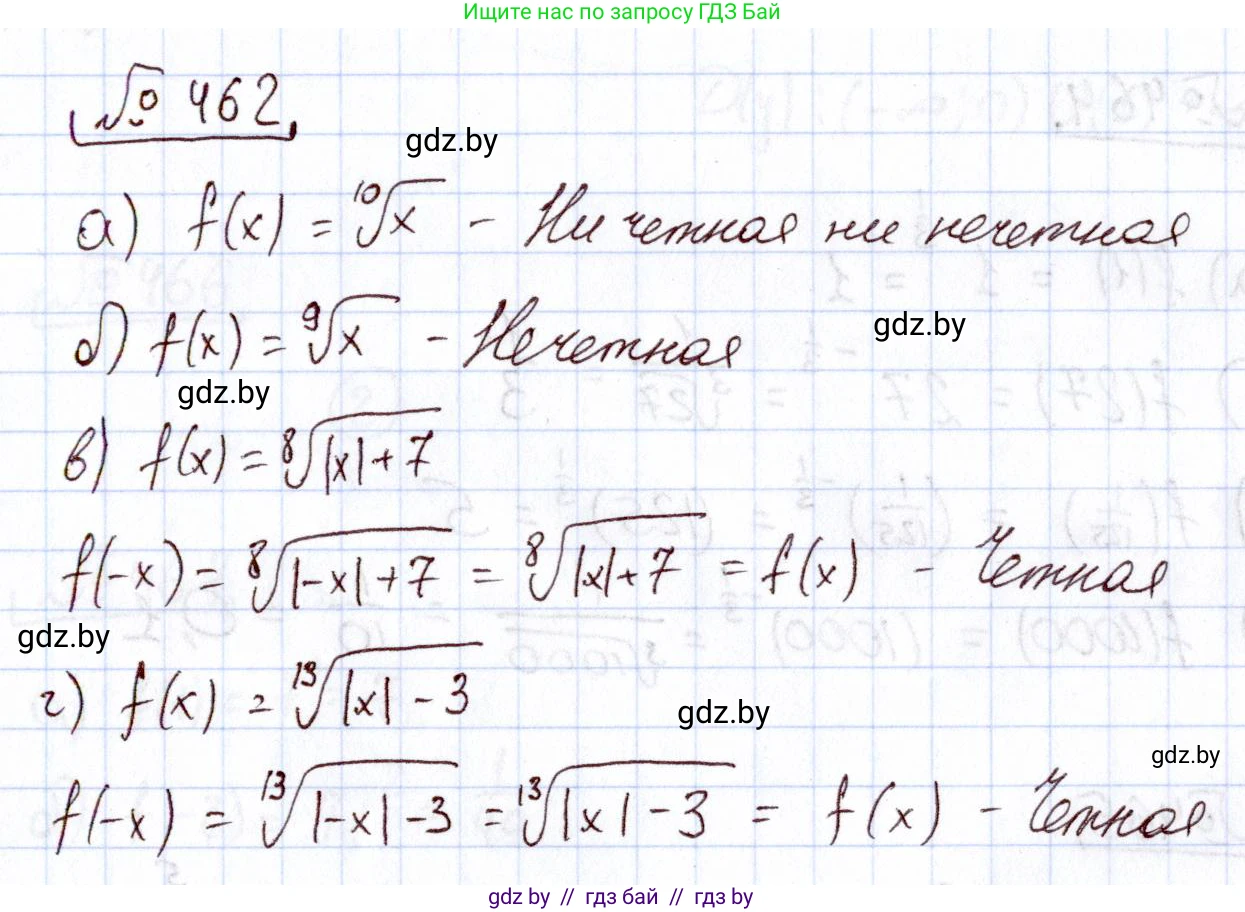 Ищите нас по запросу ГДЗ Бай
№ 462
gdz.by
а) f(x) = ¹⁰√x - Ни четная ни нечетная
б) f(x) = ⁹√x - Нечетная
gdz.by
gdz.by
в) f(x) = ⁸√(|x| + 7)
f(-x) = ⁸√(|-x| + 7) = ⁸√(|x| + 7) = f(x) - Четная
gdz.by
г) f(x) = ¹³√(|x| - 3)
gdz.by
gdz.by
f(-x) = ¹³√(|-x| - 3) = ¹³√(|x| - 3) = f(x) - Четная
gdz.by // гдз бай // гдз by